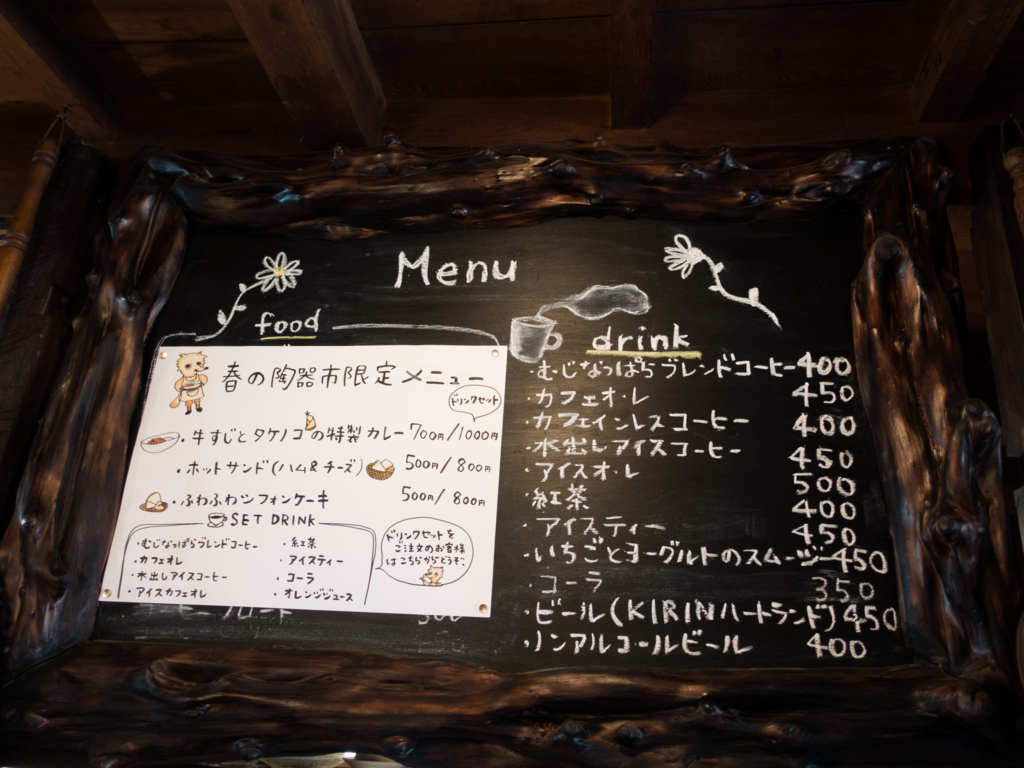 Menu
food
春の陶器市限定メニュー
ドリンクセット
・牛すじとタケノコの特製カレー 700円/1000円
・ホットサンド(ハム&チーズ) 500円/800円
・ふわふわシフォンケーキ 500円/800円
SET DRINK
・むじなっぱらブレンドコーヒー
・カフェオレ
・水出しアイスコーヒー
・アイスカフェオレ
・紅茶
・アイスティー
・コーラ
・オレンジジュース
ドリンクセットを
ご注文のお客様
はこちらからどうぞ!
drink
・むじなっぱらブレンドコーヒー 400
・カフェオ・レ 450
・カフェインレスコーヒー 400
・水出しアイスコーヒー 450
・アイスオ・レ 500
・紅茶 400
・アイスティー 450
・いちごとヨーグルトのスムージー 450
・コーラ 350
・ビール(KIRINハートランド) 450
・ノンアルコールビール 400